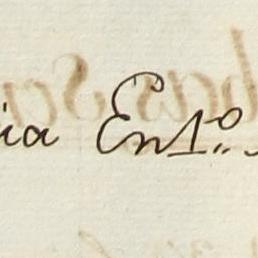 ia Ent.º